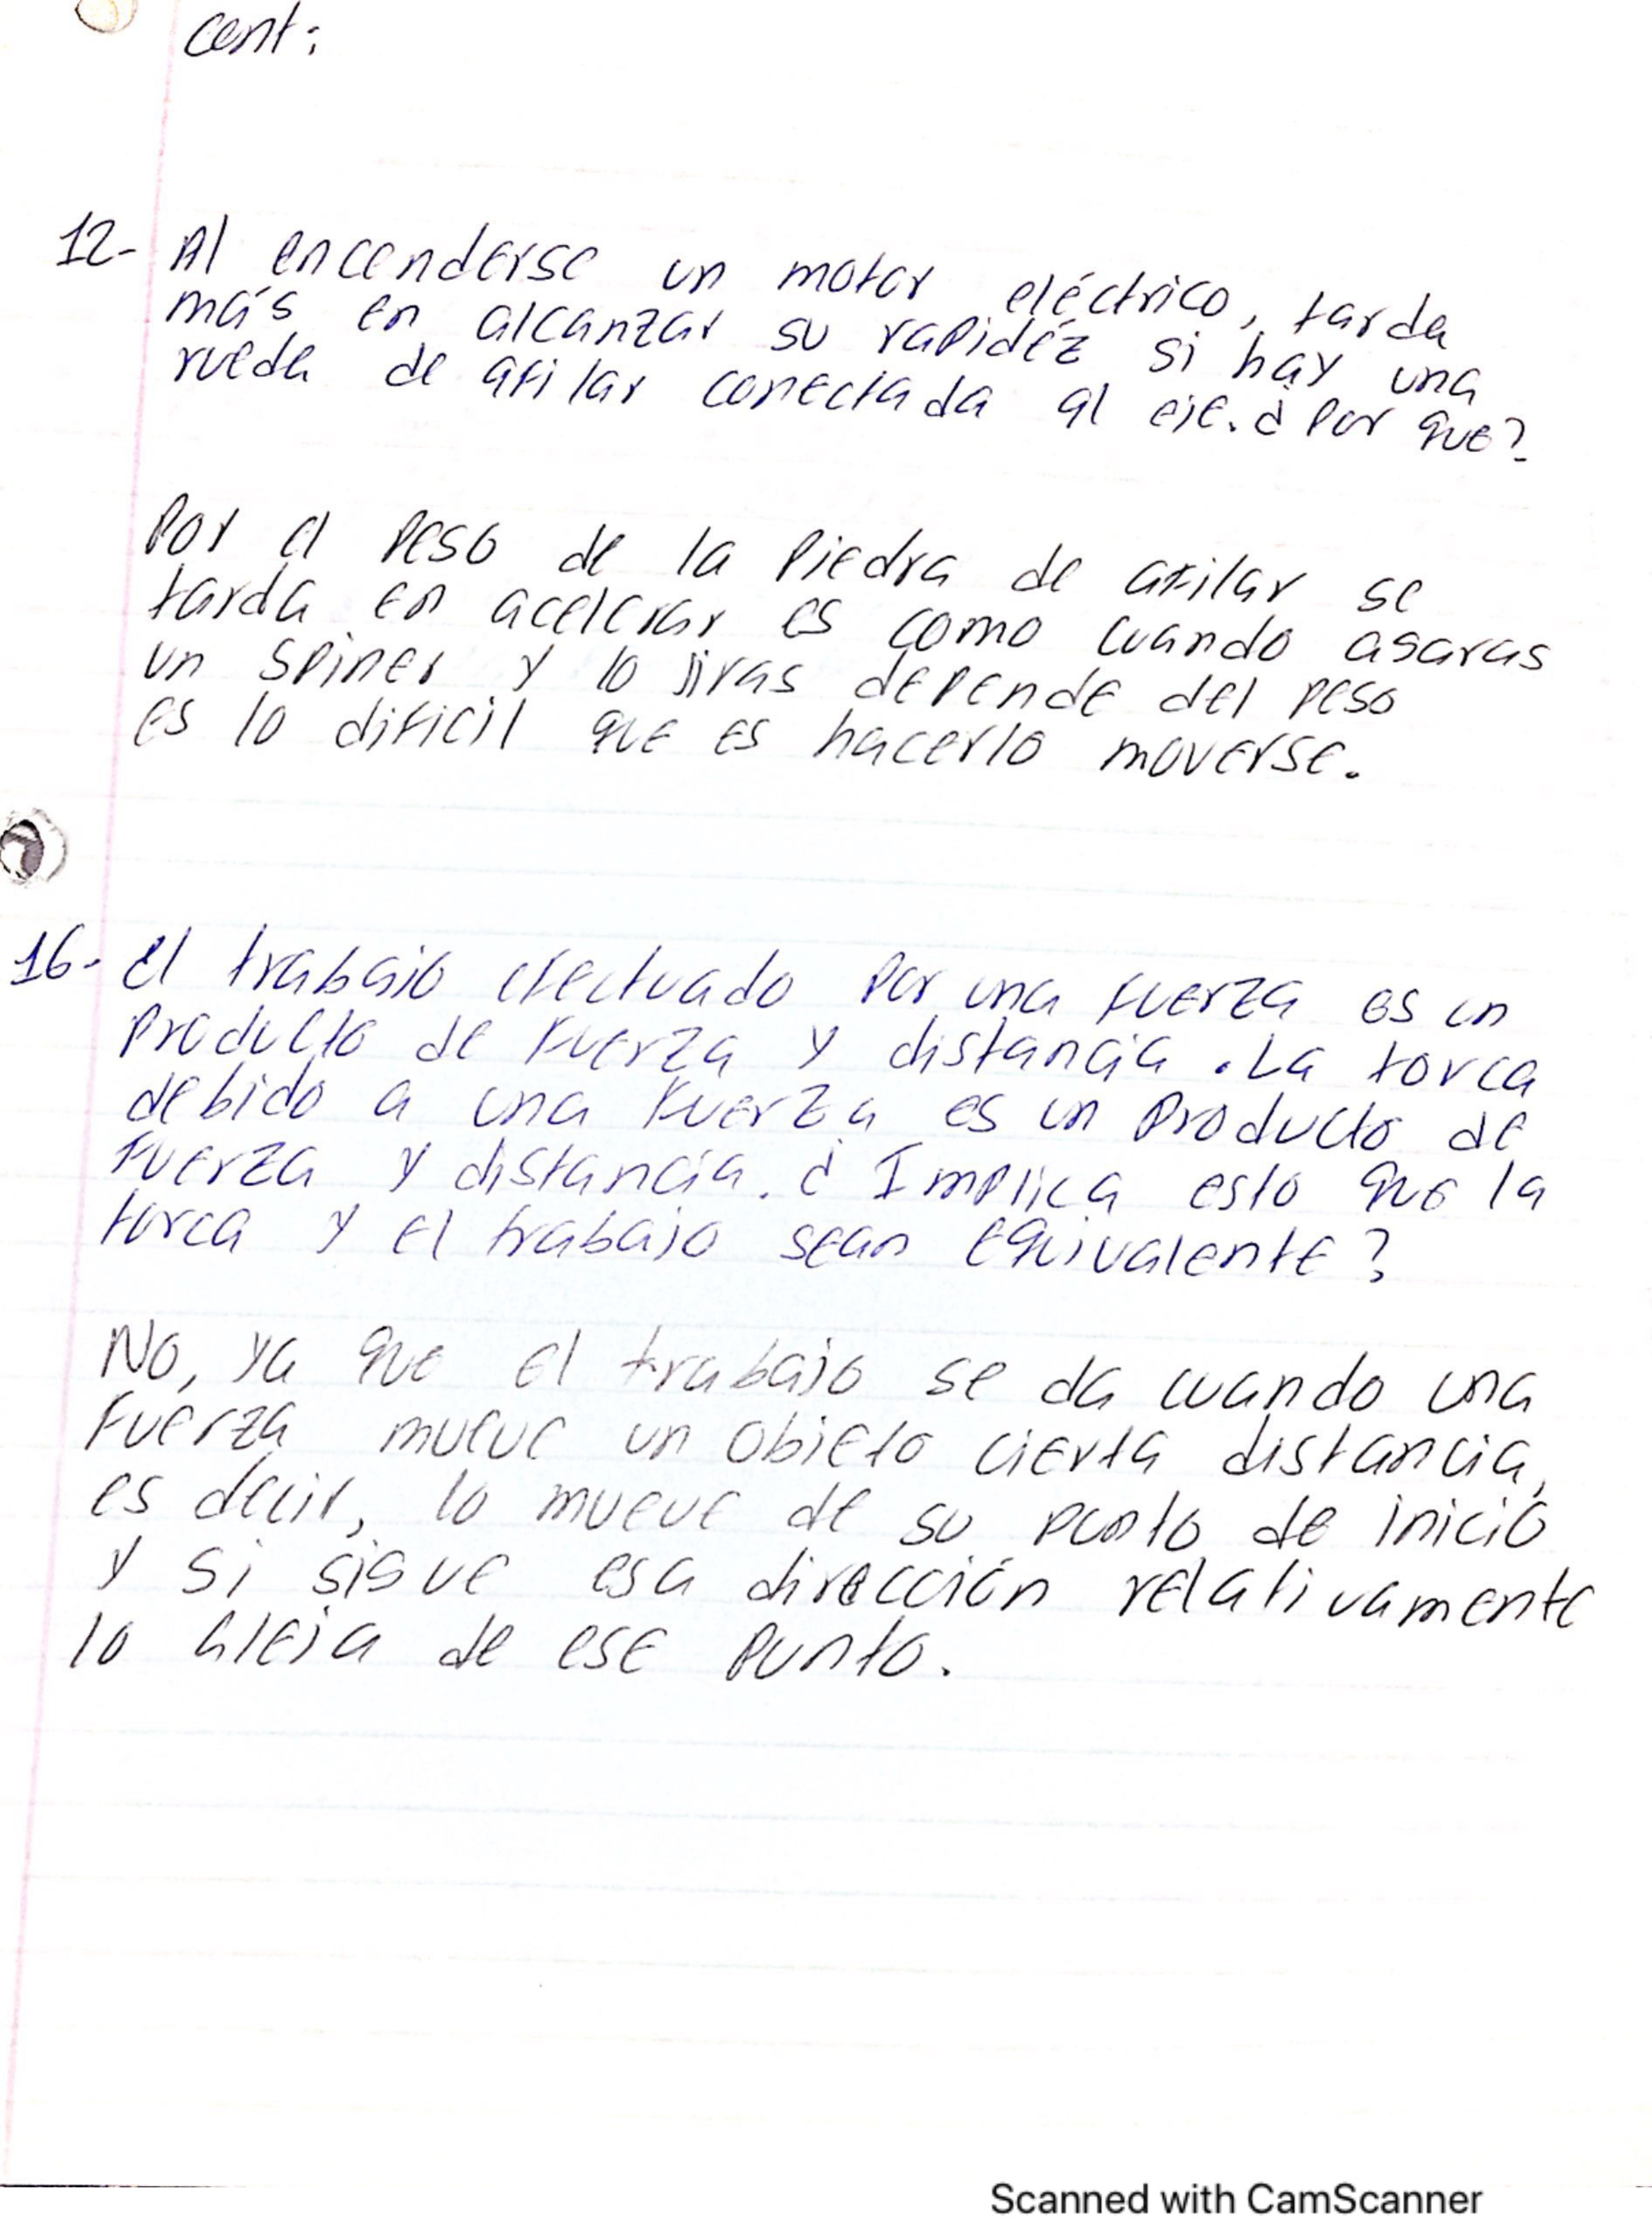 cont:
12- Al encenderse un motor eléctrico, tarda
más en alcanzar su rapidéz si hay una
rueda de afilar conectada al eje. ¿Por que?
Por el peso de la piedra de afilar se
tarda en acelerar es como cuando agaras
un spiner y lo jiras depende del peso
es lo dificil que es hacerlo moverse.
16- El trabajo efectuado por una fuerza es un
producto de fuerza y distancia. La torca
debido a una fuerza es un producto de
fuerza y distancia. ¿Implica esto que la
torca y el trabajo sean equivalente?
No, ya que el trabajo se da cuando una
fuerza mueve un objeto cierta distancia,
es decir, lo mueve de su punto de inicio
y si sigue esa dirección relativamente
lo aleja de ese punto.
Scanned with CamScanner